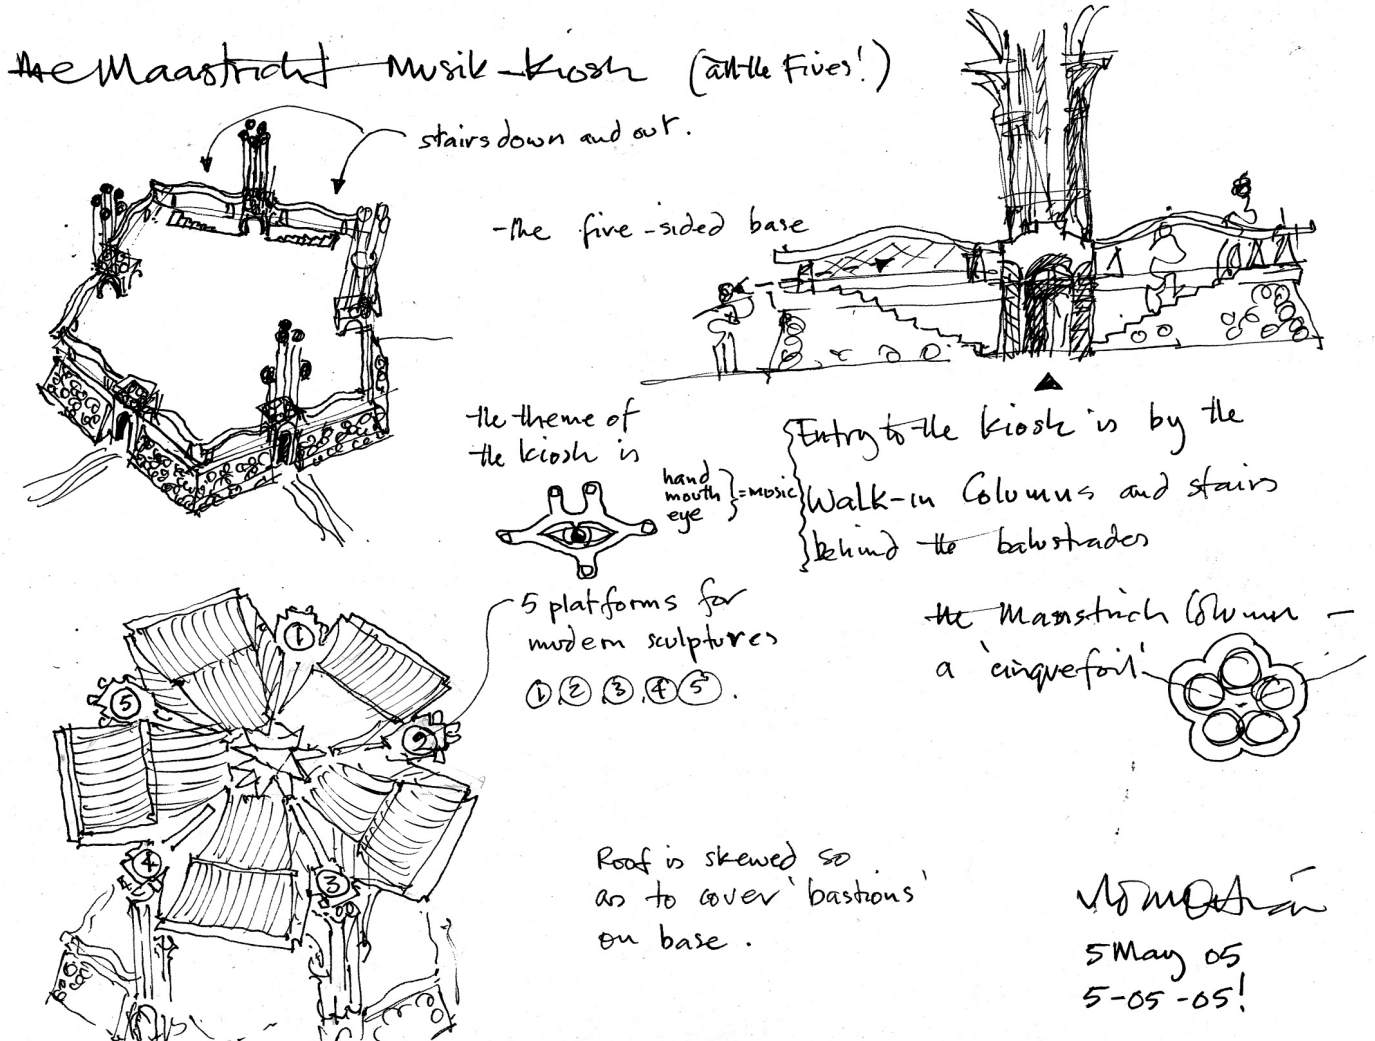 the Maastricht Musik-Kiosk (all the Fives!)
stairs down and out.
- the five-sided base
the theme of
the kiosk is
hand
mouth
eye
= MUSIC
Entry to the kiosk is by the
Walk-in Columns and stairs
behind the balustrades
5 platforms for
modern sculptures
1 2 3 4 5.
the Maastrich Column -
a 'cinquefoil'
1
5
2
4
3
Roof is skewed so
as to cover 'bastions'
on base.
5 May 05
5-05-05!